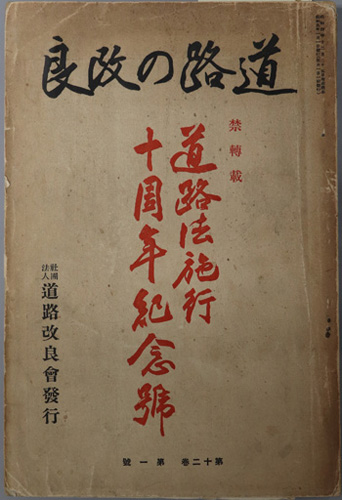 道路の改良
禁轉載
道路法施行
十周年紀念號
社團法人 道路改良會發行
第十二卷 第一號